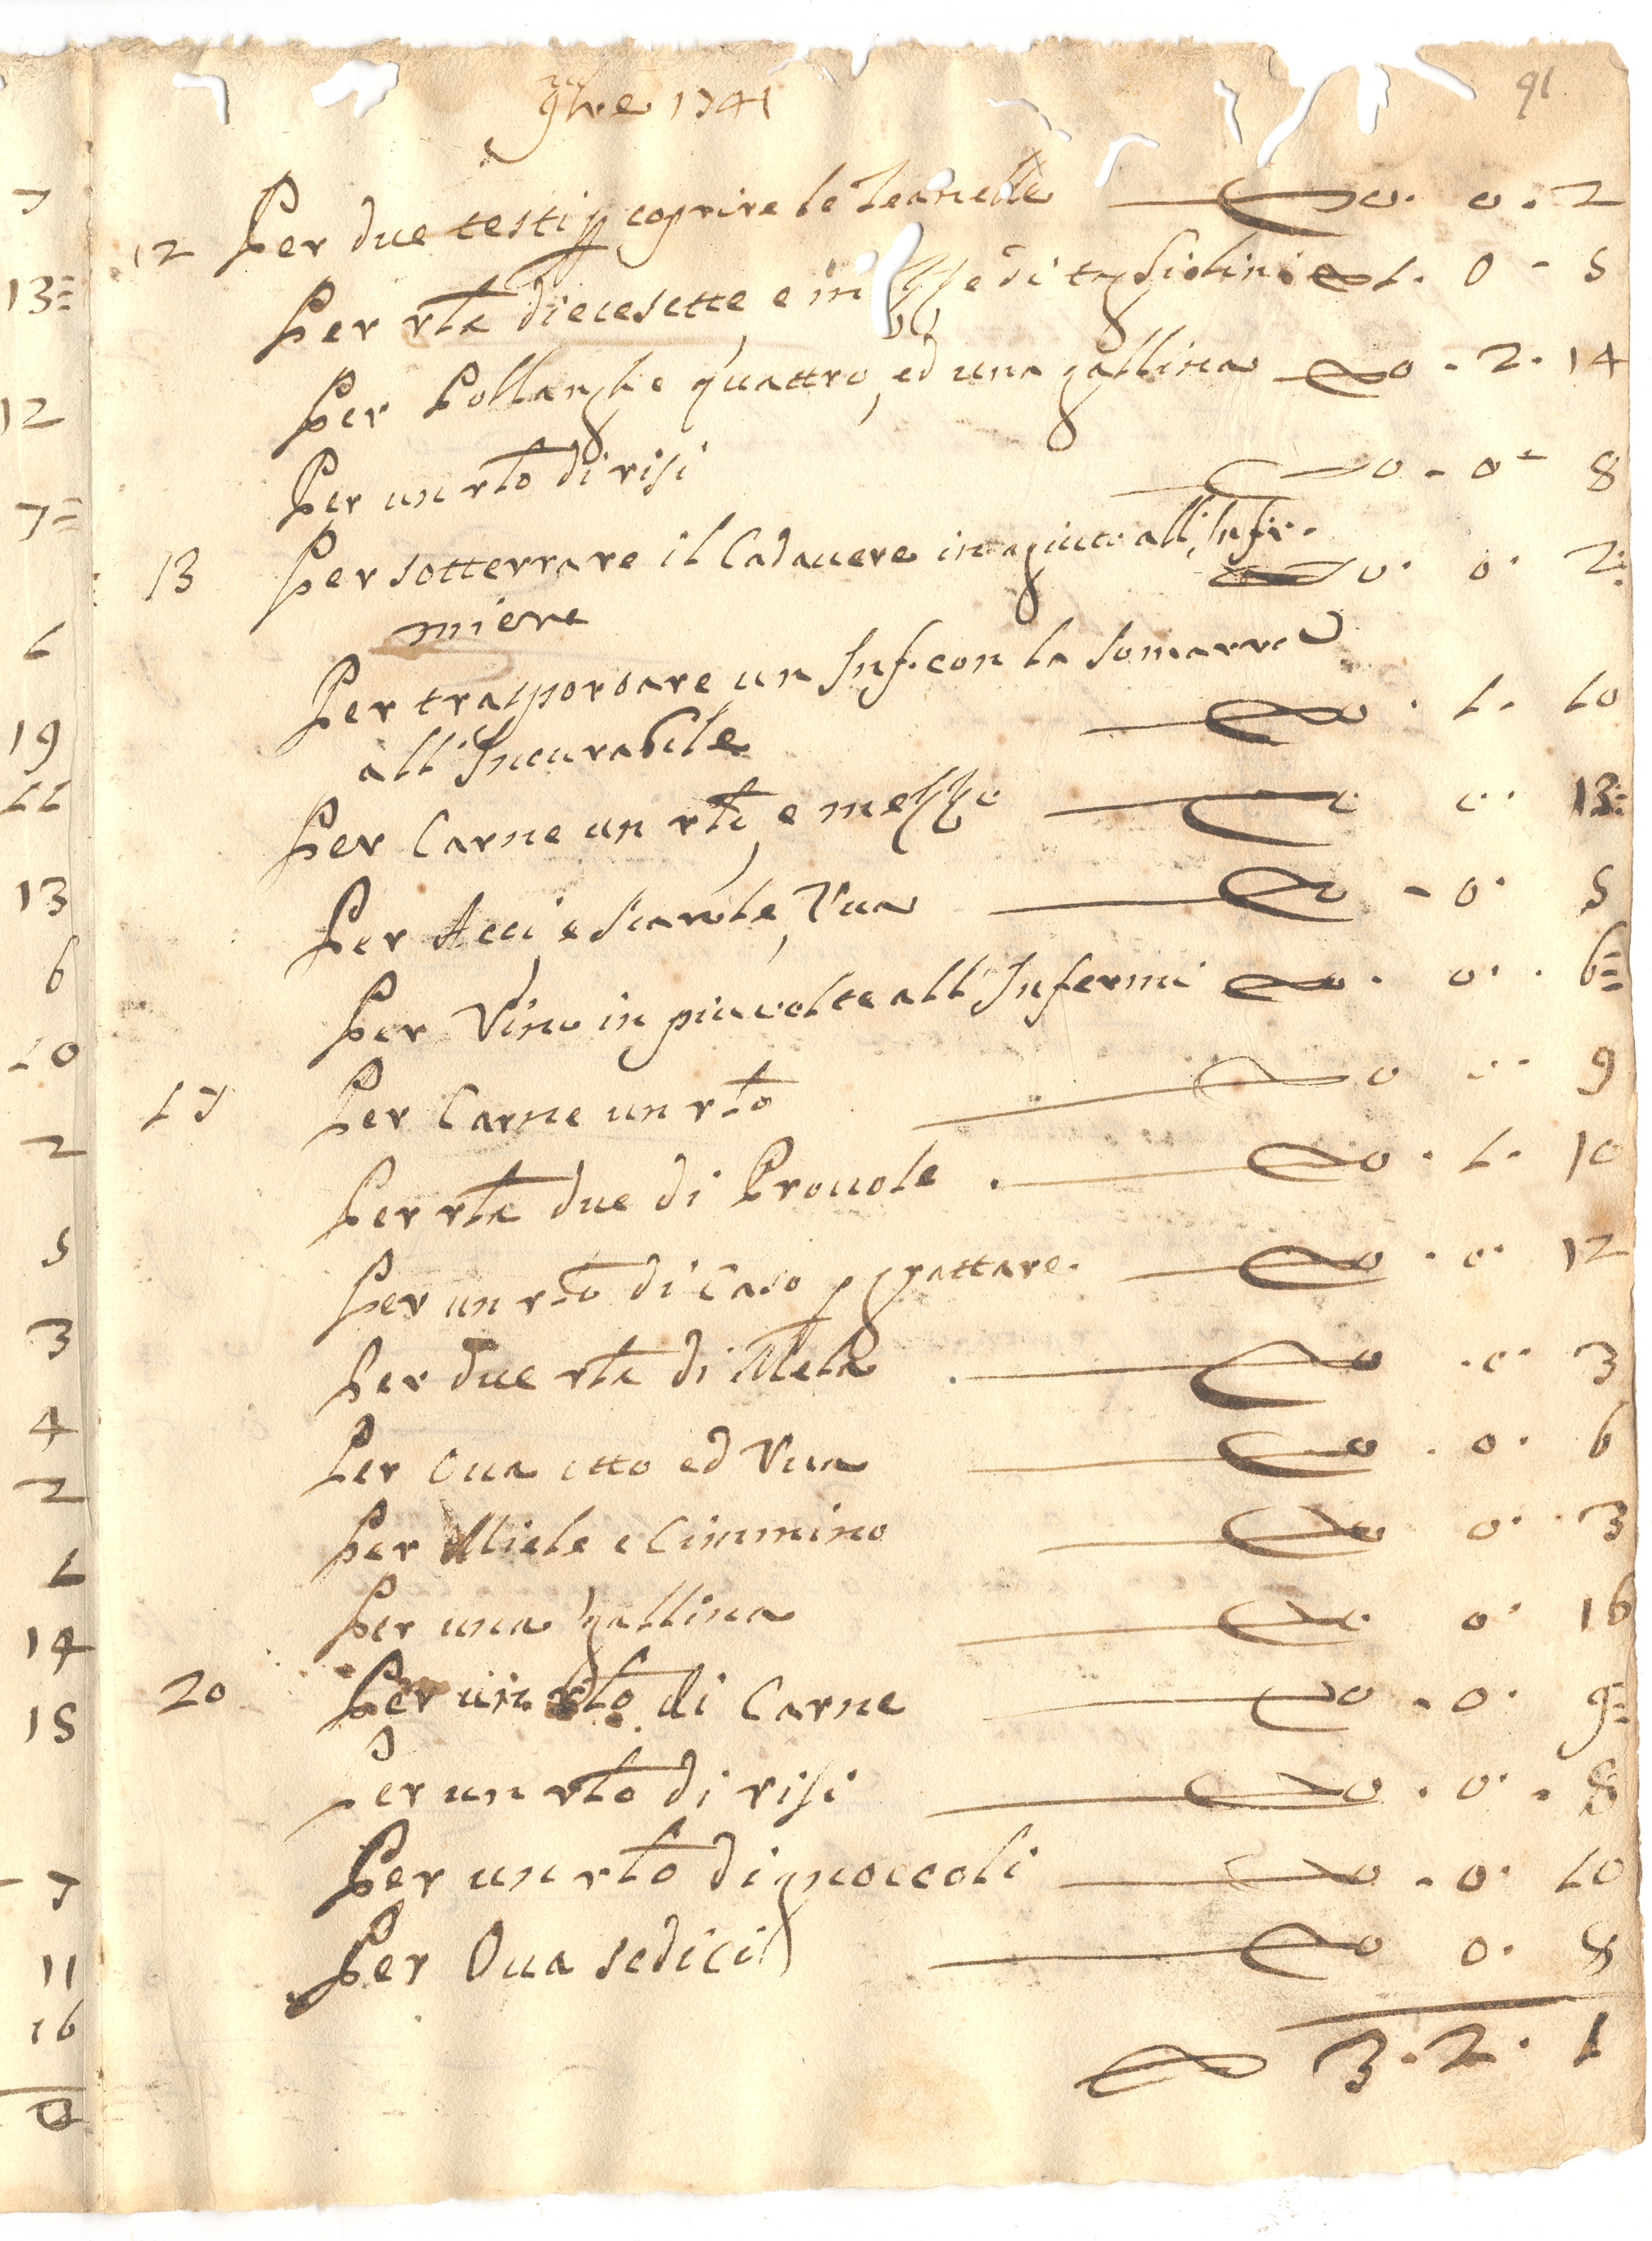 9bre 1741
91
7
12 Per due testi p coprire le teanelle 0. 0. 2
13= Per rla diecesette, e di tagliolini 1. 0 - 5
12 Per Pollanghe quattro, ed una gallina 0 - 2. 14
7= Per un rlo di risi 0 - 0 - 8
13 Per sotterrare il Cadavere in agiuto all'Infer- 0. 0. 2:
miere
6 Per trasportare un Inf. con la somarra
19 all'Incurabile 0. 1. 10
11 Per Carne un rlo, e mezzo 0 0. 13:
13 Per Acci, e Scarole, Vua 0 - 0. 5
6 Per Vino in piu volte all'Infermi 0. 0. 6=
10 17 Per Carne un rlo 0 0. 9
2 Per rla due di Prouole 0. 1. 10
5 Per un rlo di Caso p grattare 0. 0. 12
3 Per due rla di Mela 0. 0. 3
4 Per Oua otto ed Vua 0. 0. 6
2 Per Miele e Cimmino 0 0. 3
1 Per una gallina 0 0. 16
14 20 Per un rlo di Carne 0 - 0. 9=
15 Per un rlo di risi 0. 0. 8
7 Per un rlo di gnoccoli 0 - 0. 10
11 Per Oua sedici 0 0. 8
16
0 3. 2. 1